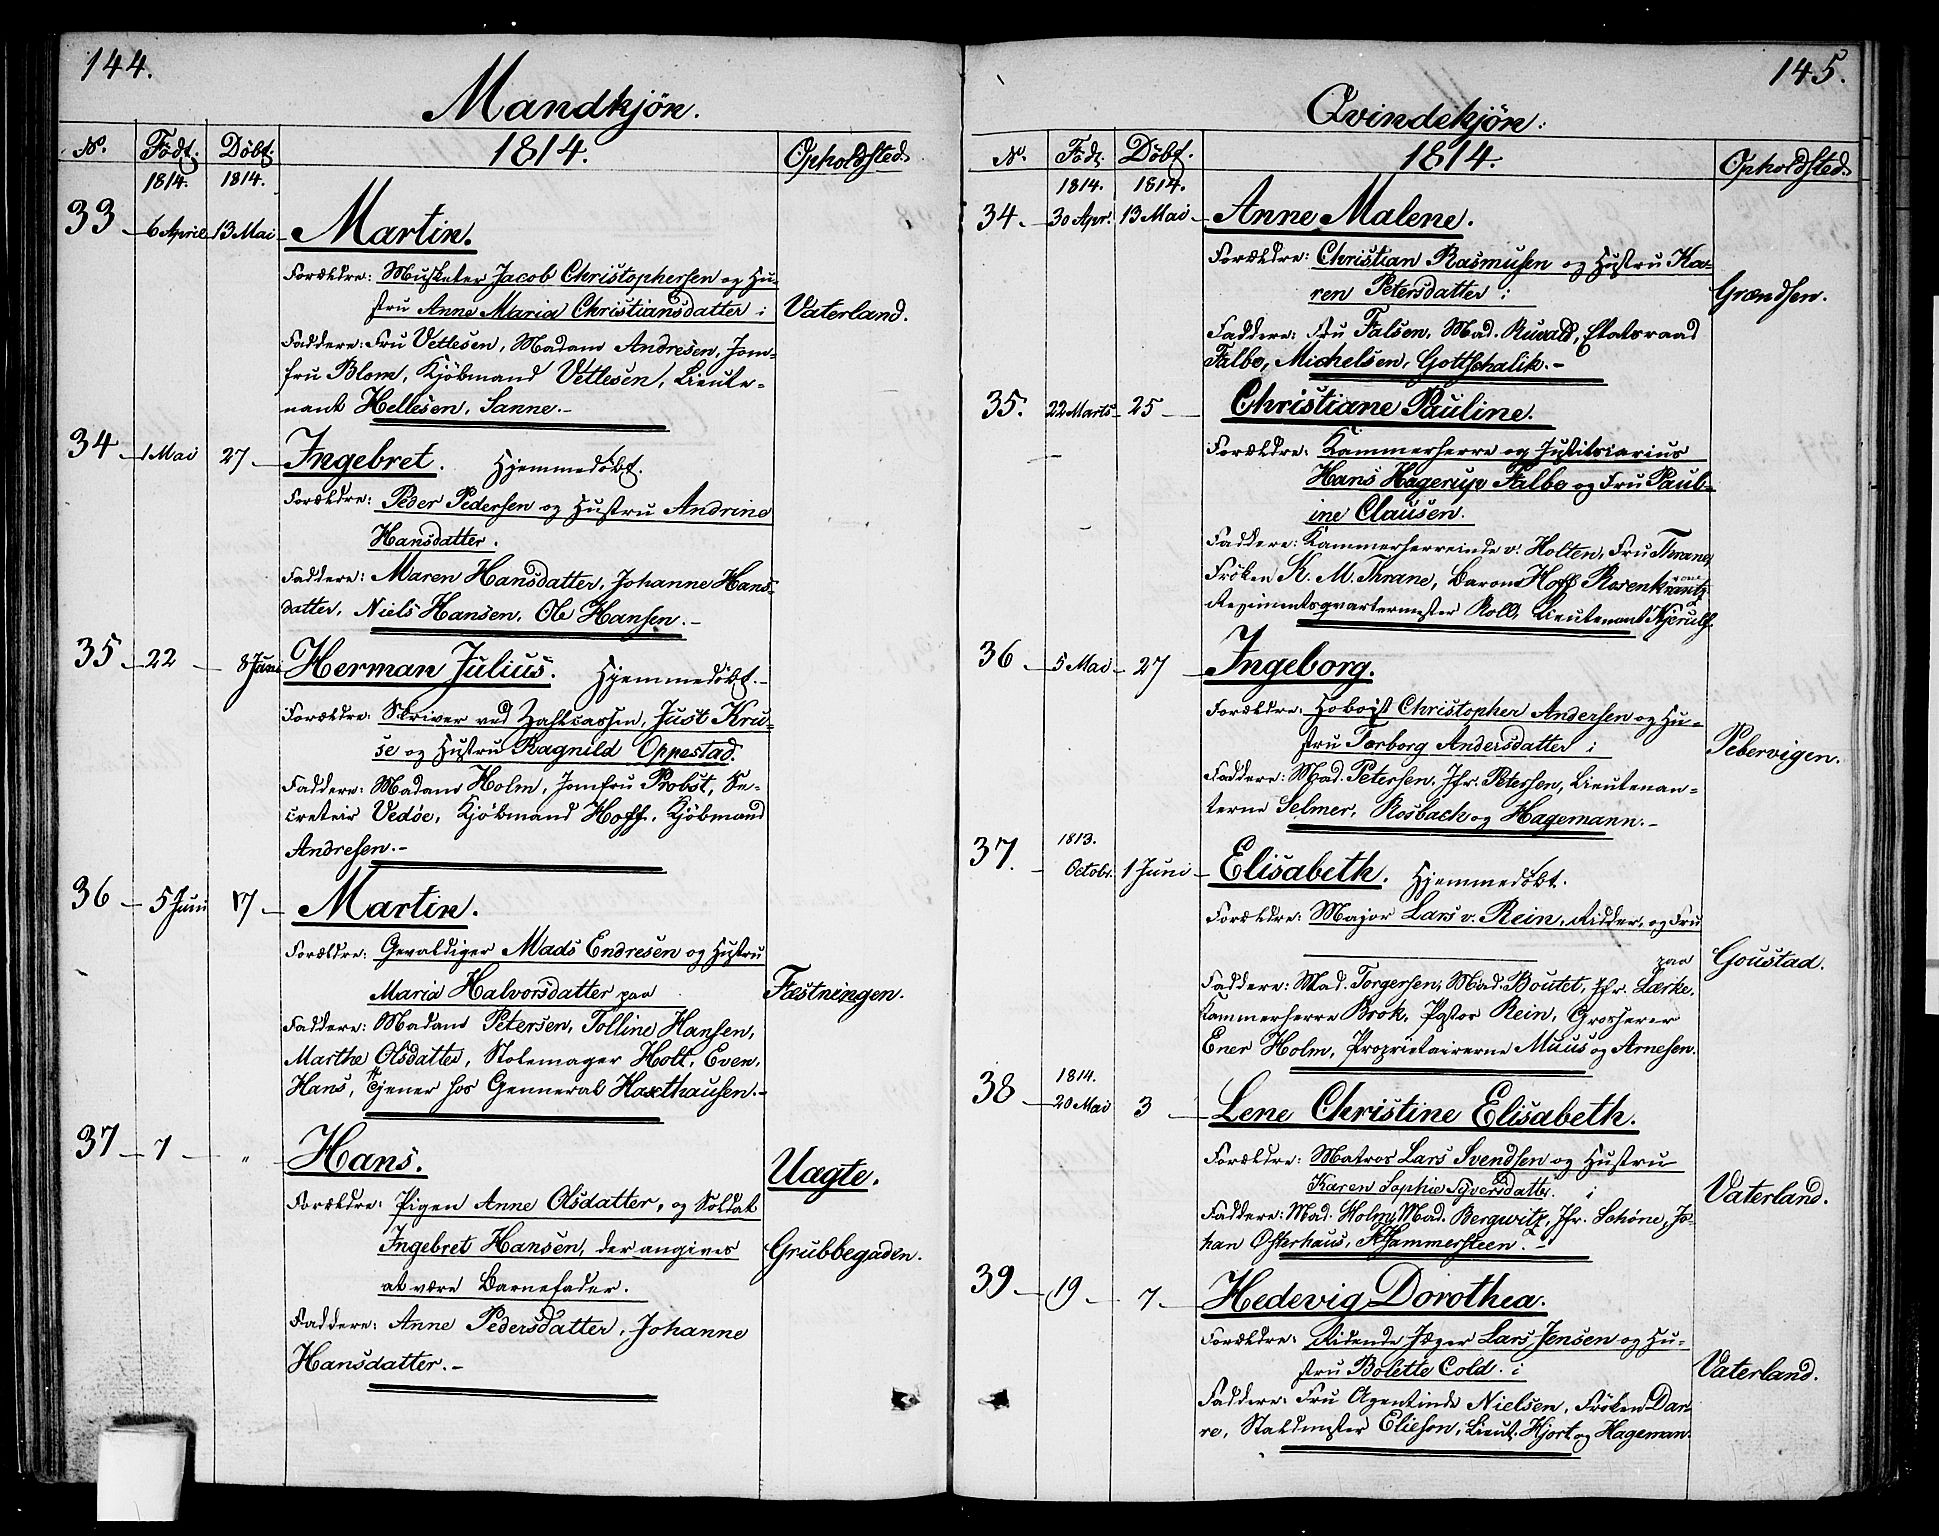 144.
Mandkjön.
No. Födt. Döbt. 1814. Opholdsted.
1814. 1814.
33 6 April 13 Mai Martin.
Forældre: Musketer Jacob Christophersen og Hu-
stru Anne Maria Christiansdatter i Vaterland.
Faddere: Fru Vettesen, Madam Andresen, Jom-
fru Blom, Kjöbmand Vettesen, Lieute-
nant Hellesen, Sanne.-
34 1 Mai 27 Ingebret. Hjemmedöbt.
Forældre: Peder Pedersen og Hustru Andrine
Hansdatter.
Faddere: Maren Hansdatter, Johanne Hans-
datter, Niels Hansen, Ole Hansen.-
35 22 8 Juni Herman Julius. Hjemmedöbt.-
Forældre: Skriver ved Zahlcassen, Just Kru-
se og Hustru Ragnild Oppestad.
Faddere: Madam Holm, Jomfru Probst, Se-
creteir Vedöe, Kjöbmand Hoff, Kjöbmand
Andresen.-
36 5 Juni 17 Martin.
Forældre: Gevaldiger Mads Endresen og Hustru
Maria Halvorsdatter paa Fæstningen.
Faddere: Madam Petersen, Tolline Hansen,
Marthe Olsdatter, Stolemager Holt, Even,
Hans, Tjener hos Genneral Haxthausen.-
37 7 " Hans. Uagte.
Forældre: Pigen Anne Olsdatter, og Soldat
Ingebret Hansen, der angives Grubbegaden.
at være Barnefader.
Faddere: Anne Pedersdatter, Johanne
Hansdatter.-
145.
Qvindekjön.
No. Födt. Döbt. 1814. Opholdsted.
1814. 1814.
34 30 Apr. 13 Mai Anne Malene.
Forældre: Christian Rasmusen og Hustru Ka-
ren Petersdatter i Grændsen.
Faddere: Fru Falsen, Mad. Ruvald, Etatsraad
Falbe, Michelsen, Gottschalik.-
35. 22 Marts 25 Christiane Pauline.
Forældre: Kammerherre og Justitiarius
Hans Hagerup Falbe og Fru Paul-
ine Clausen.
Faddere: Kammerherreinde v. Holten, Fru Thrane,
Fröken K. M. Thrane, Baron Hoff Rosenkrone
Regimentsqvartermester Roll, Lieutenant Kjerulf
36 5 Mai 27 Ingeborg.
Forældre: Hoboist Christopher Andersen og Hu-
stru Torborg Andersdatter i Pebervigen.
Faddere: Mad. Petersen, Jfr. Petersen, Lieutenan-
terne Selmer, Rosbach og Hagemann.-
37. 1813. Octobr. 1 Juni Elisabeth. Hjemmedöbt.
Forældre: Major Lars v. Rein, Ridder, og Fru
paa Goustad.
Faddere: Mad. Torgersen, Mad. Boutet, Jfr. Lærke,
Kammerherre Brok, Pastor Rein, Grosserer
Ener Holm, Proprietairerne Muus og Arnesen.
38 1814. 20 Mai 3 Lene Christine Elisabeth.
Forældre: Matros Lars Svendsen og Hustru
Karen Sophie Syversdatter. i Vaterland.
Faddere: Mad. Holm, Mad. Bergwitz, Jfr. Schöne, Jo-
han Osterhaus, Hammersteen.-
39 19 7 Hedevig Dorothea.
Forældre: Ridende Jæger Lars Jensen og Hu-
stru Bolette Cold. i Vaterland.
Faddere: Fru Agentinde Nielsen, Fröken Dar-
re, Staldmester Elieson, Lieut. Hjort og Hageman.